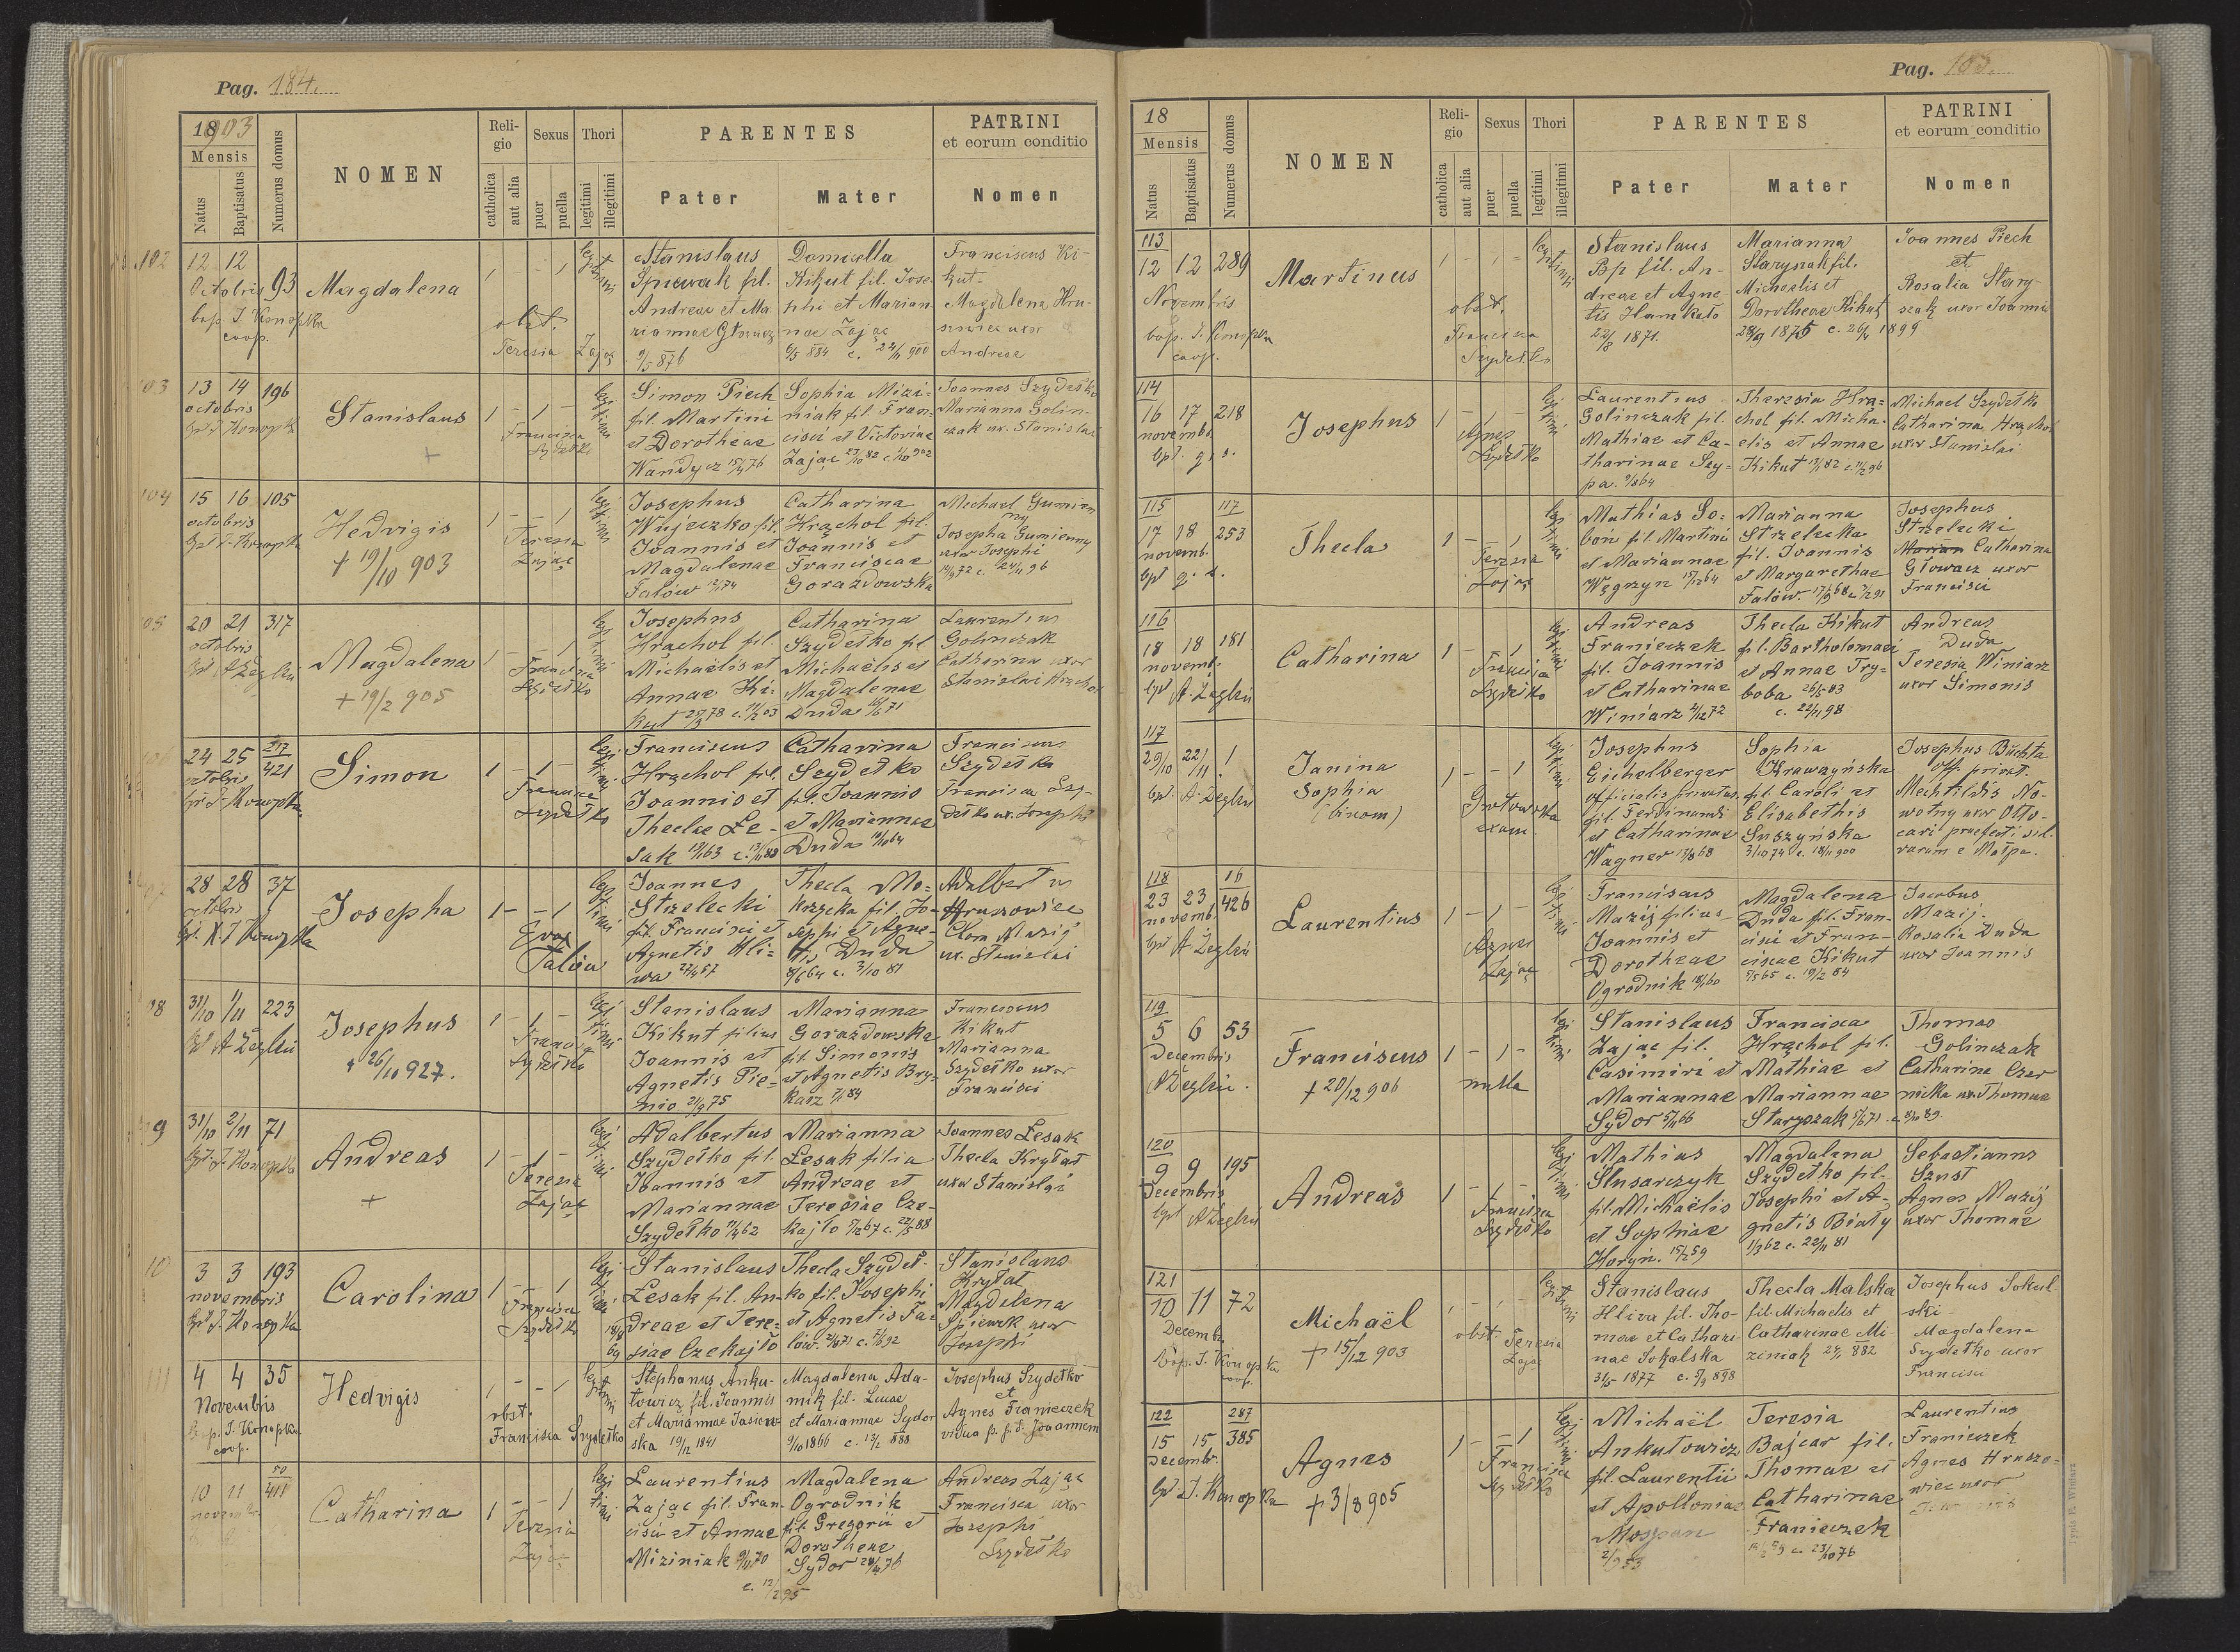 Pag. 184.
1903
Mensis
Natus
Baptisatus
Numerus domus
NOMEN
Religio
catholica
aut alia
Sexus
puer
puella
Thori
legitimi
illegitimi
PARENTES
Pater
Mater
PATRINI
et eorum conditio
Nomen
102
12 12
Octobris 93
bap. J. Konopka
coop.
Magdalena
1 - - 1
legitimi
obst.
Teresia Zając
Stanislaus
Spiewak fil.
Andreae et Ma
riannae Głowacz
9/5 876
Domicella
Kikut fil. Jose-
phi et Marian-
nae Zając
6/5 884 c. 24/11 900
Franciscus Ki-
kut -
Magdalena Hru-
szowiec uxor
Andreae
103
13 14 196
octobris
bpt J. Konopka
Stanislaus
+
1 - 1 -
legitimi
Francisca
Szydełko
Simon Piech
fil. Martini
et Dorotheae
Wandycz 15/4 76
Sophia Mizi-
niak fil. Fran-
cisci et Victoriae
Zając 23/10 82 c. 1/10 902
Joannes Szydełko
Marianna Golin-
czak ux. Stanislai
104
15 16 105
octobris
bpt J. Konopka
Hedvigis
+ 19/10 903
1 - - 1
legitimi
Teresia
Zając
Josephus
Wujeczko fil.
Joannis et
Magdalenae
Falów 12/1 74
Catharina
Hrąchol fil.
Joannis et
Franciscae
Gorazdowska
Michael Gumien
ny
Josepha Gumienny
uxor Josephi
14/9 72 c. 24/11 96
105
20 21 317
octobris
bpt A Żegliń
Magdalena
+ 19/2 905
1 - - 1
legitimi
Francisca
Szydełko
Josephus
Hrąchol fil.
Michaëlis et
Annae Ki-
kut 25/9 78 c. 11/2 03
Catharina
Szydełko fil
Michaëlis et
Magdalenae
Duda 18/6 71
Laurentius
Golinczak
Catharina uxor
Stanislai Hrąchol
106
24 25 217
octobris 421
bpt J. Konopka
Simon
1 - 1 -
legitimi
Francisca
Szydełko
Franciscus
Hrąchol fil.
Joannis et
Theclae Le-
sak 19/1 63 c. 13/11 88
Catharina
Szydełko
fil. Joannis
et Mariannae
Duda 10/10 64
Franciscus
Szydełko
Francisca Szy-
dełko ux. Josephi
107
28 28 37
octobris
bpt. X. J Konopka
Josepha
1 - - 1
legitimi
Eva
Falów
Joannes
Strzelecki
fil. Francisci et
Agnetis Hli-
wa 27/4 57
Thecla Mo-
krzycka fil. Jo-
sephi et Agne-
tis Duda
8/5 64 c. 3/10 81
Adalbertus
Hruszowiec
Clara Mazij
ux. Stanislai
108
31/10 1/11 223
bpt A Żegliń
Josephus
+ 26/10 927.
1 - 1 -
legitimi
Francisca
Szydełko
Stanislaus
Kikut filius
Joannis et
Agnetis Pie-
nio 21/9 75
Marianna
Gorazdowska
fil. Simonis
et Agnetis Bry-
kasz 2/1 84
Franciscus
Kikut
Marianna
Szydełko uxor
Francisci
109
31/10 2/11 71
bpt. J. Konopka
Andreas
+
1 - 1 -
legitimi
Teresia
Zając
Adalbertus
Szydełko fil.
Joannis et
Mariannae
Szydełko 11/4 62
Marianna
Lesak filia
Andreae et
Teresiae Cze-
kajło 7/12 67 c. 22/5 88
Joannes Lesak
Thecla Krytat
uxor Stanislai
110
3 3 193
novembris
bpt J. Konopka
Carolina
1 - - 1
legitimi
Francisca
Szydełko
Stanislaus
Lesak fil. An-
dreae et Tere-
siae Czekajło
Thecla Szydeł-
ko fil. Josephi
et Agnetis Fa-
lów
Stanislaus
Krytat
Magdalena
Spiewak uxor
Josephi
111
4 4 35
Novembris
bap. J. Konopka
coop.
Hedvigis
1 - - 1
legitimi
obst.
Francisca Szydełko
Stephanus Anku-
towicz fil. Joannis
et Mariannae Jasiew-
ska 19/12 1841
Magdalena Ada-
mik fil. Lucae
et Mariannae Sydor
9/10 1866 c. 13/2 888
Josephus Szydełko
et
Agnes Franieczek
vidua p. d. Joannem
10 11 50
novembr. 411
Catharina
1 - - 1
legitimi
Teresia
Zając
Laurentius
Zając fil. Fran-
cisci et Annae
Miziniak 9/11 70
Magdalena
Ogrodnik
fil. Gregorii et
Dorotheae
Sydor 28/4 76
c. 12/2 95
Andreas Zając
Francisca uxor
Josephi
Szydełko
Pag. 185.
18
Mensis
Natus
Baptisatus
Numerus domus
NOMEN
Religio
catholica
aut alia
Sexus
puer
puella
Thori
legitimi
illegitimi
PARENTES
Pater
Mater
PATRINI
et eorum conditio
Nomen
113
12 12 289
Novembris
bap. J. Konopka
coop.
Martinus
1 - 1 -
legitimi
obst.
Francisca
Szydełko
Stanislaus
Bp fil. An-
dreae et Agne-
tis Hamkało
22/8 1871.
Marianna
Staryszak fil.
Michaelis et
Dorotheae Kikut
28/9 1875 c. 26/4 1899
Joannes Piech
et
Rosalia Stary-
szak uxor Joannis
114
16 17 218
novembr.
bpt. q. s.
Josephus
1 - 1 -
legitimi
Agnes
Szydełko
Laurentius
Golinczak fil.
Mathiae et Ca-
tharinae Szy-
pa. 9/8 64
Theresia Hrą-
chol fil. Micha-
elis et Annae
Kikut
Michael Szydełko
Catharina Hrąchol
uxor Stanislai
115
17 18 117
novemb. 253
bpt q. s.
Thecla
1 - 1
legitimi
Teresia
Zając
Mathias So-
boń fil. Martini
et Mariannae
Węgrzyn 15/12 64
Marianna
Strzelecka
fil. Joannis
et Margarethae
Falów.
Josephus
Strzelecki
Catharina
Głowacz uxor
Francisci
116
18 18 181
novemb.
bpt A. Żegliń
Catharina
1 - 1
legitimi
Francisca
Szydełko
Andreas
Franieczek
fil. Joannis
et Catharinae
Winiarz 2/12 72
Thecla Kikut
fil. Bartholomaei
et Annae Try-
boba 26/5 83
c. 22/11 98
Andreas
Duda
Teresia Winiarz
uxor Simonis
117
29/10 22/11 1
bpt. A. Żegliń
Janina
Sophia
(binom)
1 - - 1
legitimi
Grotowska
exam.
Josephus
Eichelberger
officialis privatus
fil. Ferdinandi
et Catharinae
Wagner 13/8 68
Sophia
Krawczyńska
fil. Caroli et
Elisabethis
Suszyńska
3/10 74 c. 18/11 900
Josephus Buchta
off. privat.
Mechtildis No-
wotny uxor Otto-
cari praefecti sil-
varum e Małpa.
118
23 23 16
novemb. 426
bpt A Żegliń
Laurentius
1 - 1 -
legitimi
Agnes
Zając
Franciscus
Mazij filius
Joannis et
Dorotheae
Ogrodnik 18/1 60
Magdalena
Duda fil. Fran-
cisci et Fran-
ciscae Kikut
7/5 65 c. 19/2 84
Jacobus
Mazij.
Rosalia Duda
uxor Joannis
119
5 6 53
Decembris
A Żegliń.
Franciscus
+ 20/12 906
1 - 1 -
legitimi
nulla
Stanislaus
Zając fil.
Casimiri et
Mariannae
Sydor 5/11 66
Francisca
Hrąchol fil.
Mathiae et
Mariannae
Staryszak 5/6 71 c. 8/10 89.
Thomas
Golinczak
Catharina Czer
nicka ux. Thomae
120
9 9 195
Decembris
bpt A Żegliń
Andreas
1 - 1 -
legitimi
Francisca
Szydełko
Mathias
Slusarczyk
fil. Michaëlis
et Sophiae
Horyń. 15/2 59
Magdalena
Szydełko fil.
Josephi et A-
gnetis Biały
1/3 62 c. 22/11 81
Sebastianus
Szust
Agnes Mazij
uxor Thomae
121
10 11 72
Decembr.
bap. J. Konopka
coop.
Michaël
+ 15/12 903
1 - 1 -
legitimi
obst. Teresia
Zając
Stanislaus
Hliva fil. Tho-
mae et Cathari-
nae Sokalska
31/5 1877 c. 5/9 898
Thecla Malska
fil. Michaelis et
Catharinae Mi-
ziniak 24/1 882
Josephus Sokal-
ski -
Magdalena
Szydełko uxor
Francisci
122
15 15 287
Decembr. 385
bpt J. Konopka
Agnes
+ 3/8 905
1 - - 1
legitimi
Francisca
Szydełko
Michaël
Ankutowicz
fil. Laurentii
et Apolloniae
Mospan
Teresia
Bajcar fil.
Thomae et
Catharinae
Franieczek
Laurentius
Franieczek
Agnes Hruszo-
wiec uxor